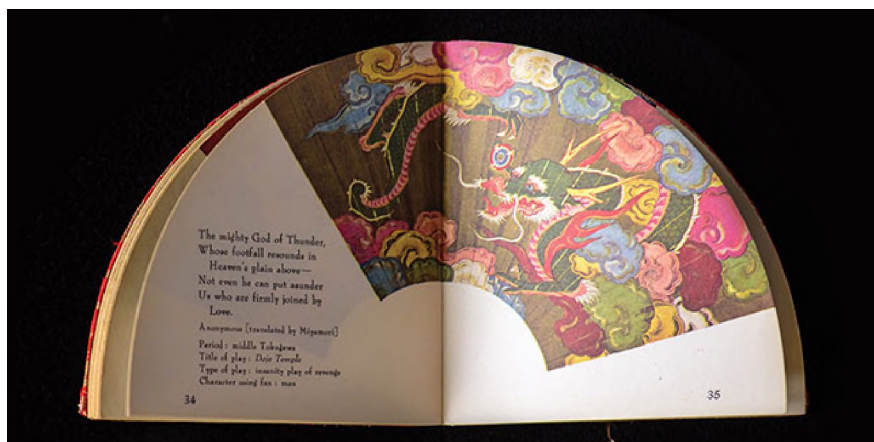 The mighty God of Thunder,
Whose footfall resounds in
Heaven's plain above—
Not even he can put asunder
Us who are firmly joined by
Love.
Anonymous [translated by Miyamori]
Period: middle Tokugawa
Title of play: Dojo Temple
Type of play: insanity play of revenge
Character using fan: man
34
35